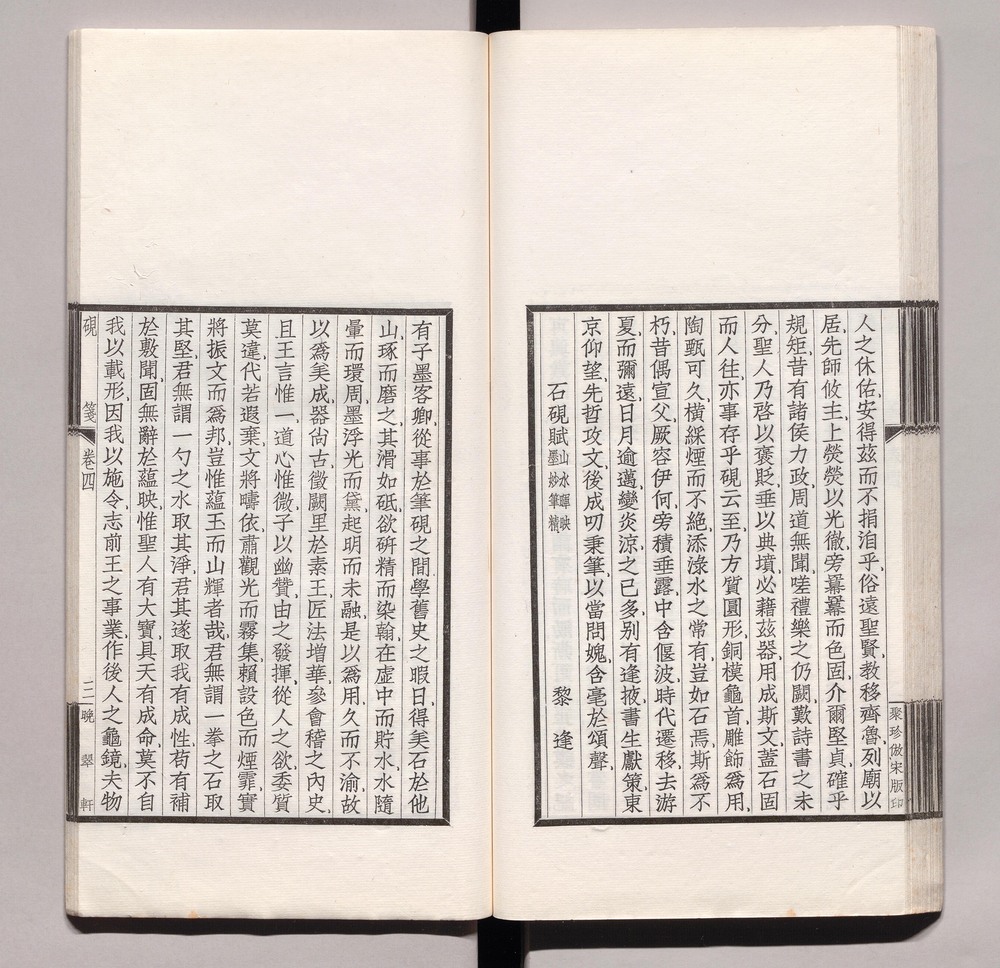 人之休佑安得茲而不捐洎乎俗遠聖賢教移齊魯列廟以
居先師攸主上熒熒以光徹旁羃羃而色固介爾堅貞確乎
規矩昔有諸侯力政周道無聞嗟禮樂之仍闕歎詩書之未
分聖人乃啓以褒貶垂以典墳必藉茲器用成斯文蓋石固
而人往亦事存乎硯云至乃方質圓形銅模龜首雕飾爲用
陶甄可久橫綵煙而不絕添淥水之常有豈如石焉斯爲不
朽昔偶宣父厥容伊何旁積垂露中含偃波時代遷移去游
夏而彌遠日月逾邁變炎涼之已多別有逢掖書生獻策東
京仰望先哲攻文後成叨秉筆以當問媿含毫於頌聲
石硯賦山水暉映墨妙筆精
黎逢
聚珍倣宋版印
有子墨客卿從事於筆硯之間學舊史之暇日得美石於他
山琢而磨之其滑如砥欲硏精而染翰在虛中而貯水水隨
暈而環周墨浮光而黛起明而未融是以爲用久而不渝故
以爲美成器尙古徵闕里於素王匠法增華參會稽之內史
且王言惟一道心惟微子以幽贊由之發揮從人之欲委質
莫違代若遐棄文將疇依肅觀光而霧集賴設色而煙霏實
將振文而爲邦豈惟蘊玉而山輝者哉君無謂一拳之石取
其堅君無謂一勺之水取其淨君其遂取我有成性苟有補
於敷聞固無辭於蘊映惟聖人有大寶具天有成命莫不自
我以載形因我以施令志前王之事業作後人之龜鏡夫物
硯箋
卷四
三一晚翠軒